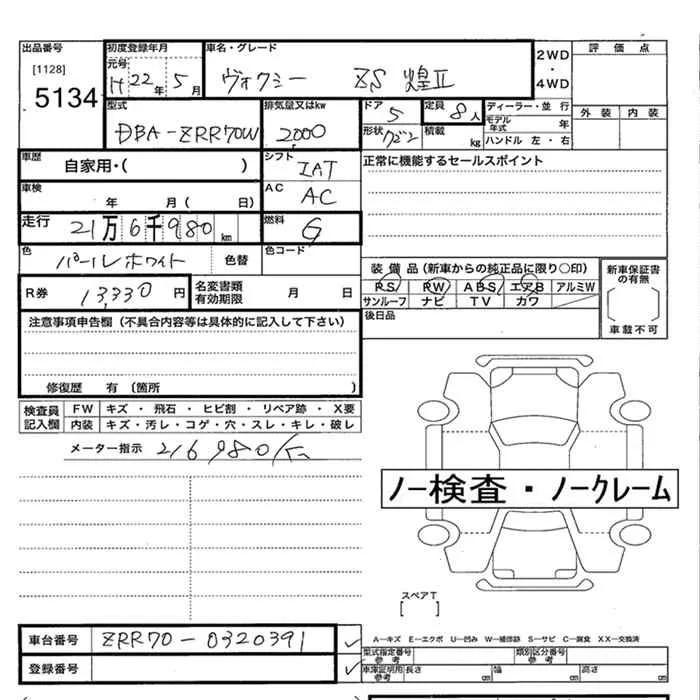 出品番号 初度登録年月 車名・グレード 2WD・4WD 評価点
[1128] 元号 H22年5月 ヴォクシー ZS 煌Ⅱ
5134
型式 排気量又はkw ドア 5 定員 8人 ディーラー・並行 外装 内装
DBA-ZRR70W 2000 形状 積載 kg モデル年式 年
ハンドル 左・右
車歴 自家用・( ) シフト IAT 正常に機能するセールスポイント
車検 年 月( 日) AC AC
走行 21万6千980km 燃料 G
色 パールホワイト 色替 色コード
装備品(新車からの純正品に限り○印) 新車保証書の有無
R券 13,330円 名変書類有効期限 月 日 PS PW ABS エアB アルミW
サンルーフ ナビ TV カワ 車載不可
注意事項申告欄(不具合内容等は具体的に記入して下さい) 後日品
修復歴 有(箇所 )
検査員記入欄 FW キズ・飛石・ヒビ割・リペア跡・X要
内装 キズ・汚レ・コゲ・穴・スレ・キレ・破レ
メーター指示 216980K
ノー検査・ノークレーム
スペアT
[ ]
車台番号 ZRR70-0320391 A—キズ E—エクボ U—凹み W—補修跡 S—サビ C—腐食 XX—交換済
型式指定番号 参考 類別区分番号 参考
登録番号 車庫証明用 参考 長さ cm 幅 cm 高さ cm